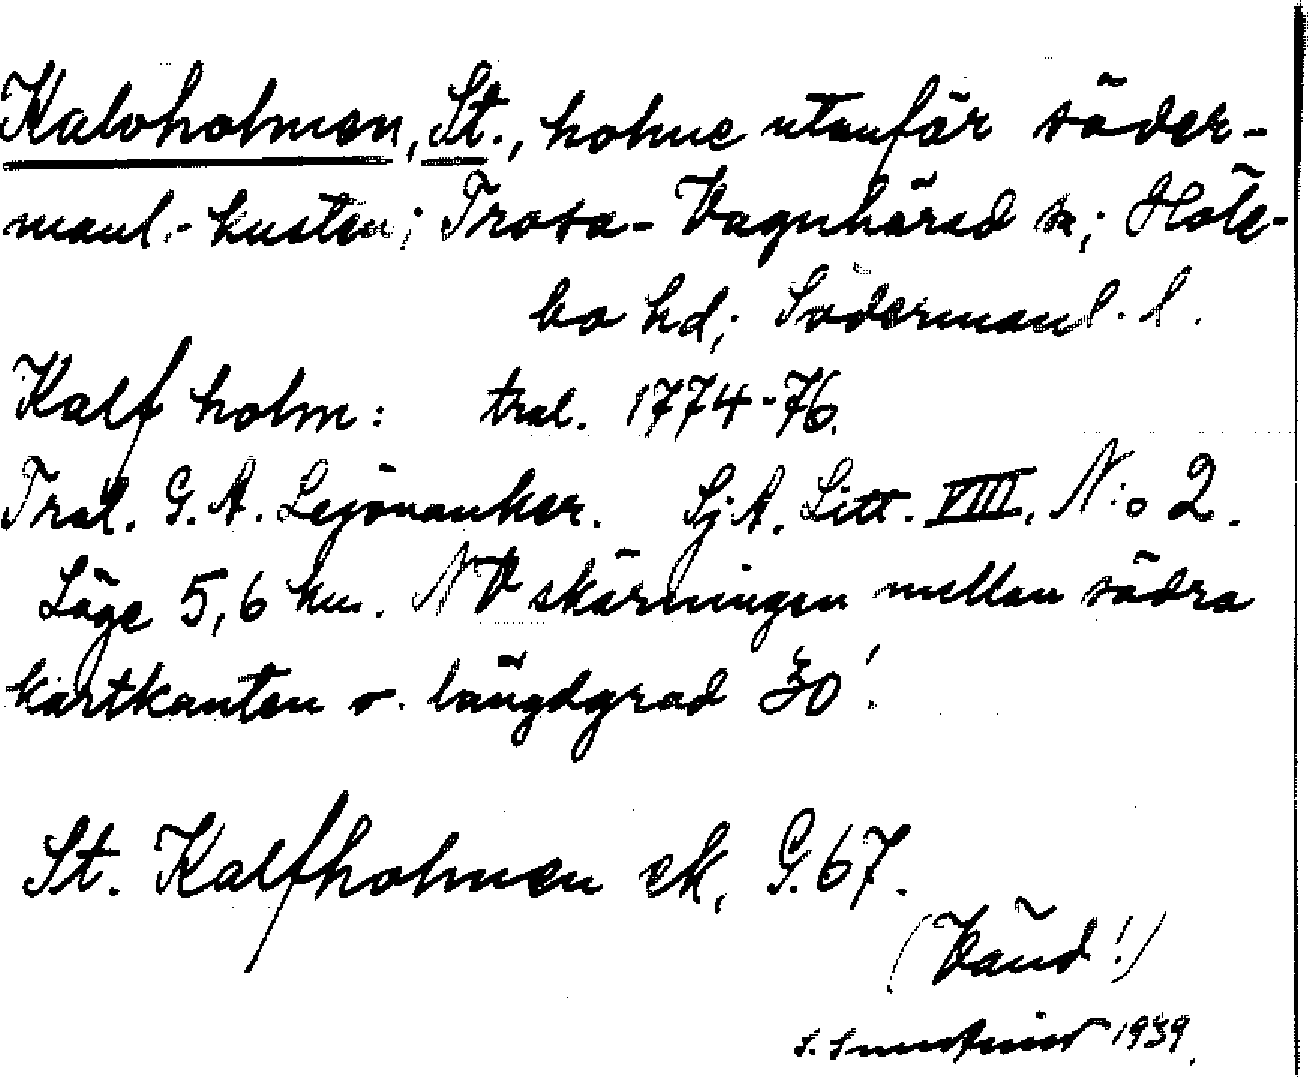 Kalvholmen, St., holme utanför söder-
manl.-kusten; Trosa-Vagnhärad sn; Höle-
bo hd; Södermanl. l.
Kalfholm: tral. 1774-76.
Tral. G. A. Lejonanker. Sj A. Litt. VIII. N:o 2.
Läge 5,6 km. NV skärningen mellan södra
kartkanten o. längdgrad 30'.
St. Kalfholmen ek. G. 67.
(Vänd!)
S. 1939.